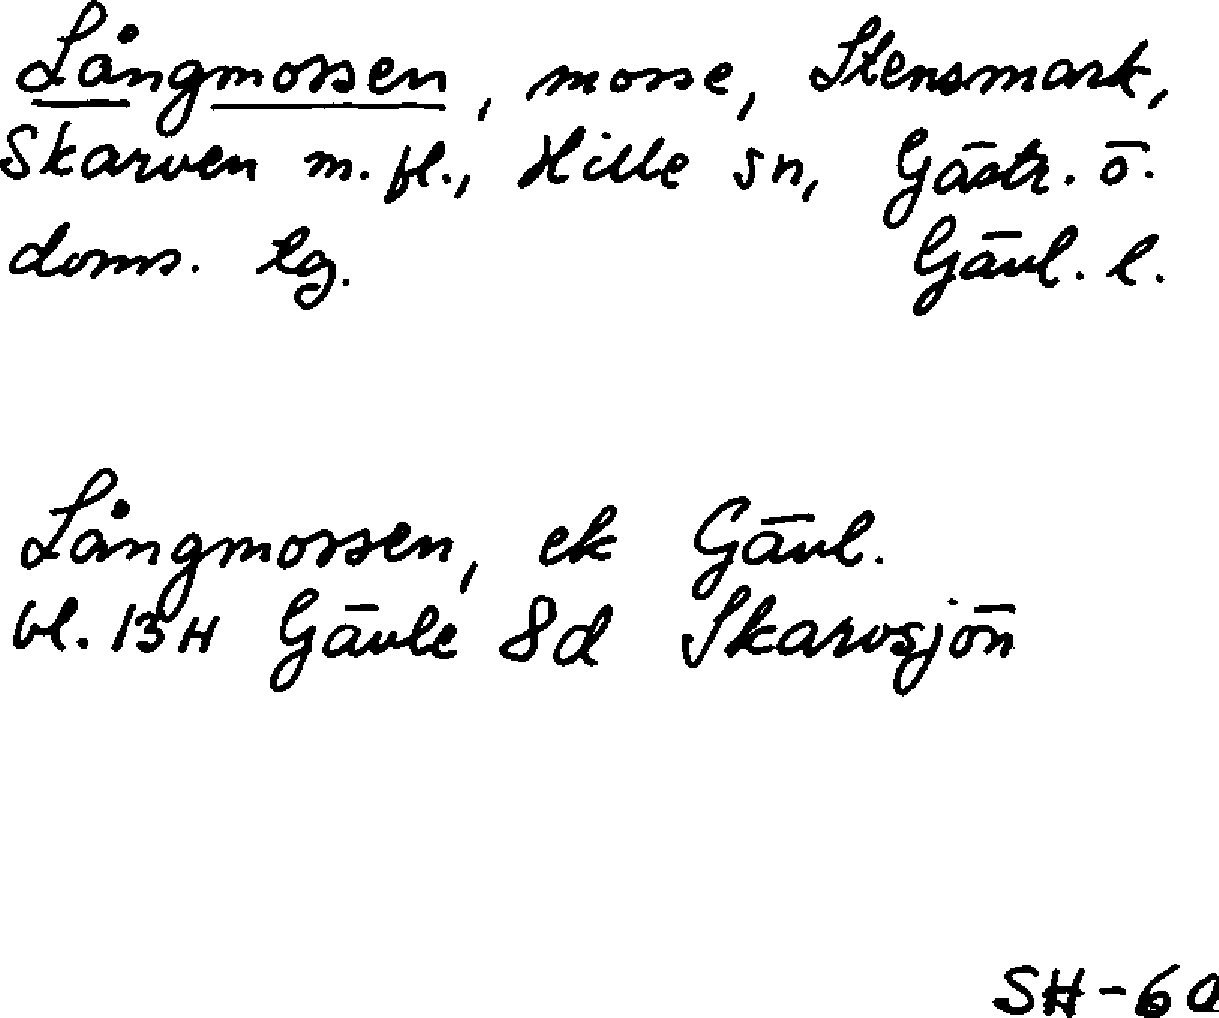 Långmossen, mosse, Stensmark,
Skarven m.fl., Hille sn, Gästr. ö.
doms. lg. Gävl. l.
Långmossen, ek Gävl.
bl. 13H Gävle 8d Skarvsjön
SH-60